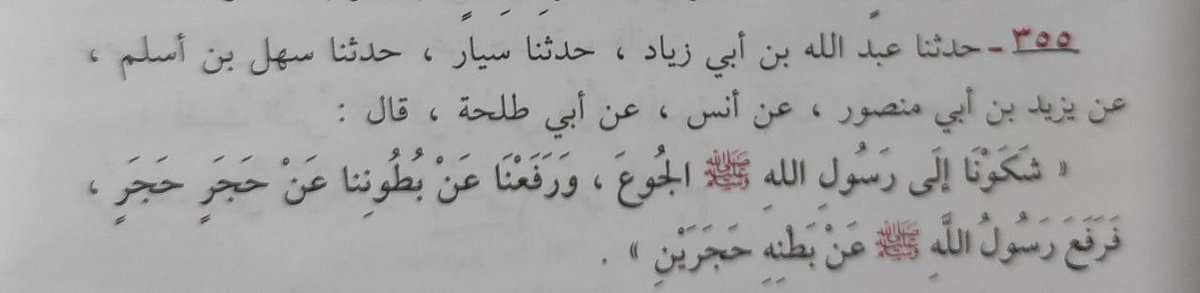 ٣٥٥ - حدثنا عبد الله بن أبي زياد ، حدثنا سيار ، حدثنا سهل بن أسلم ،
عن يزيد بن أبي منصور ، عن أنس ، عن أبي طلحة ، قال :
« شَكَوْنَا إِلَى رَسُولِ اللهِ ﷺ الجُوعَ ، وَرَفَعْنَا عَنْ بُطُونِنا عَنْ حَجَرٍ حَجَرٍ ،
فَرَفَعَ رَسُولُ اللَّهِ ﷺ عَنْ بَطْنِهِ حَجَرَيْنِ » .